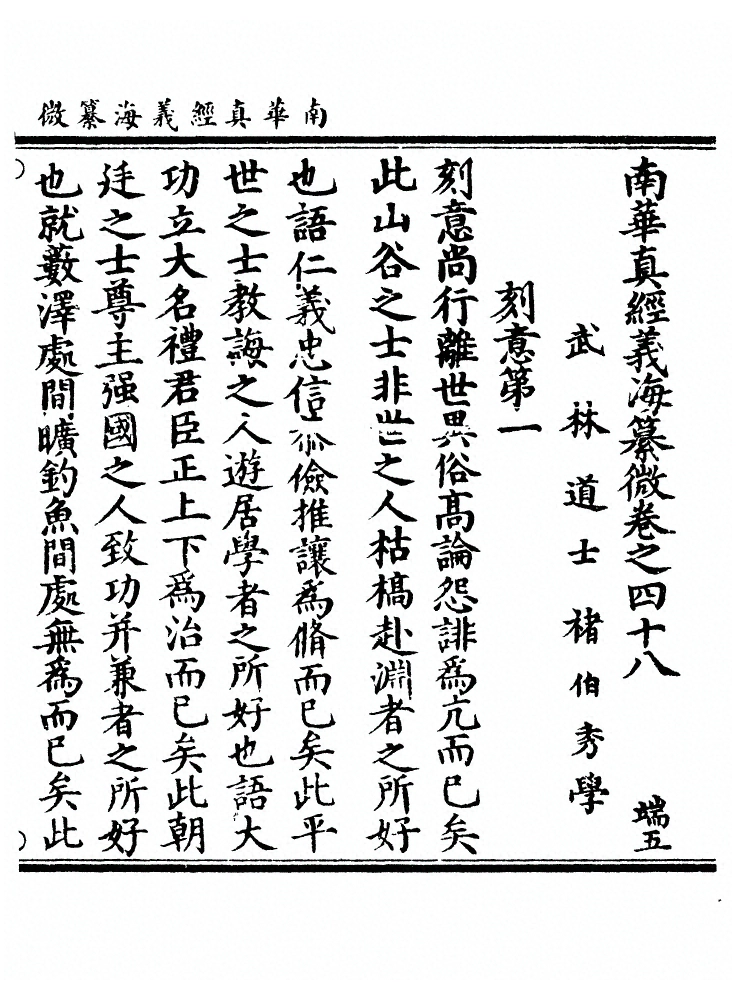 南華真經義海纂微
南華真經義海纂微卷之四十八 端五
武林道士褚伯秀學
刻意第一
刻意尚行離世異俗高論怨誹爲亢而已矣
此山谷之士非世之人枯槁赴淵者之所好
也語仁義忠信㳟儉推讓爲脩而已矣此平
世之士教誨之人遊居學者之所好也語大
功立大名禮君臣正上下爲治而已矣此朝
廷之士尊主强國之人致功并兼者之所好
也就藪澤處間曠釣魚間處無爲而已矣此